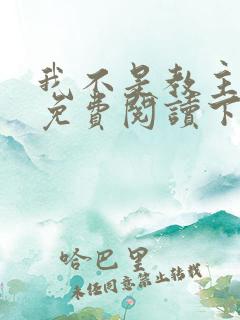 我不是教主
免費閱讀下
哈巴里
未经同意禁止转载